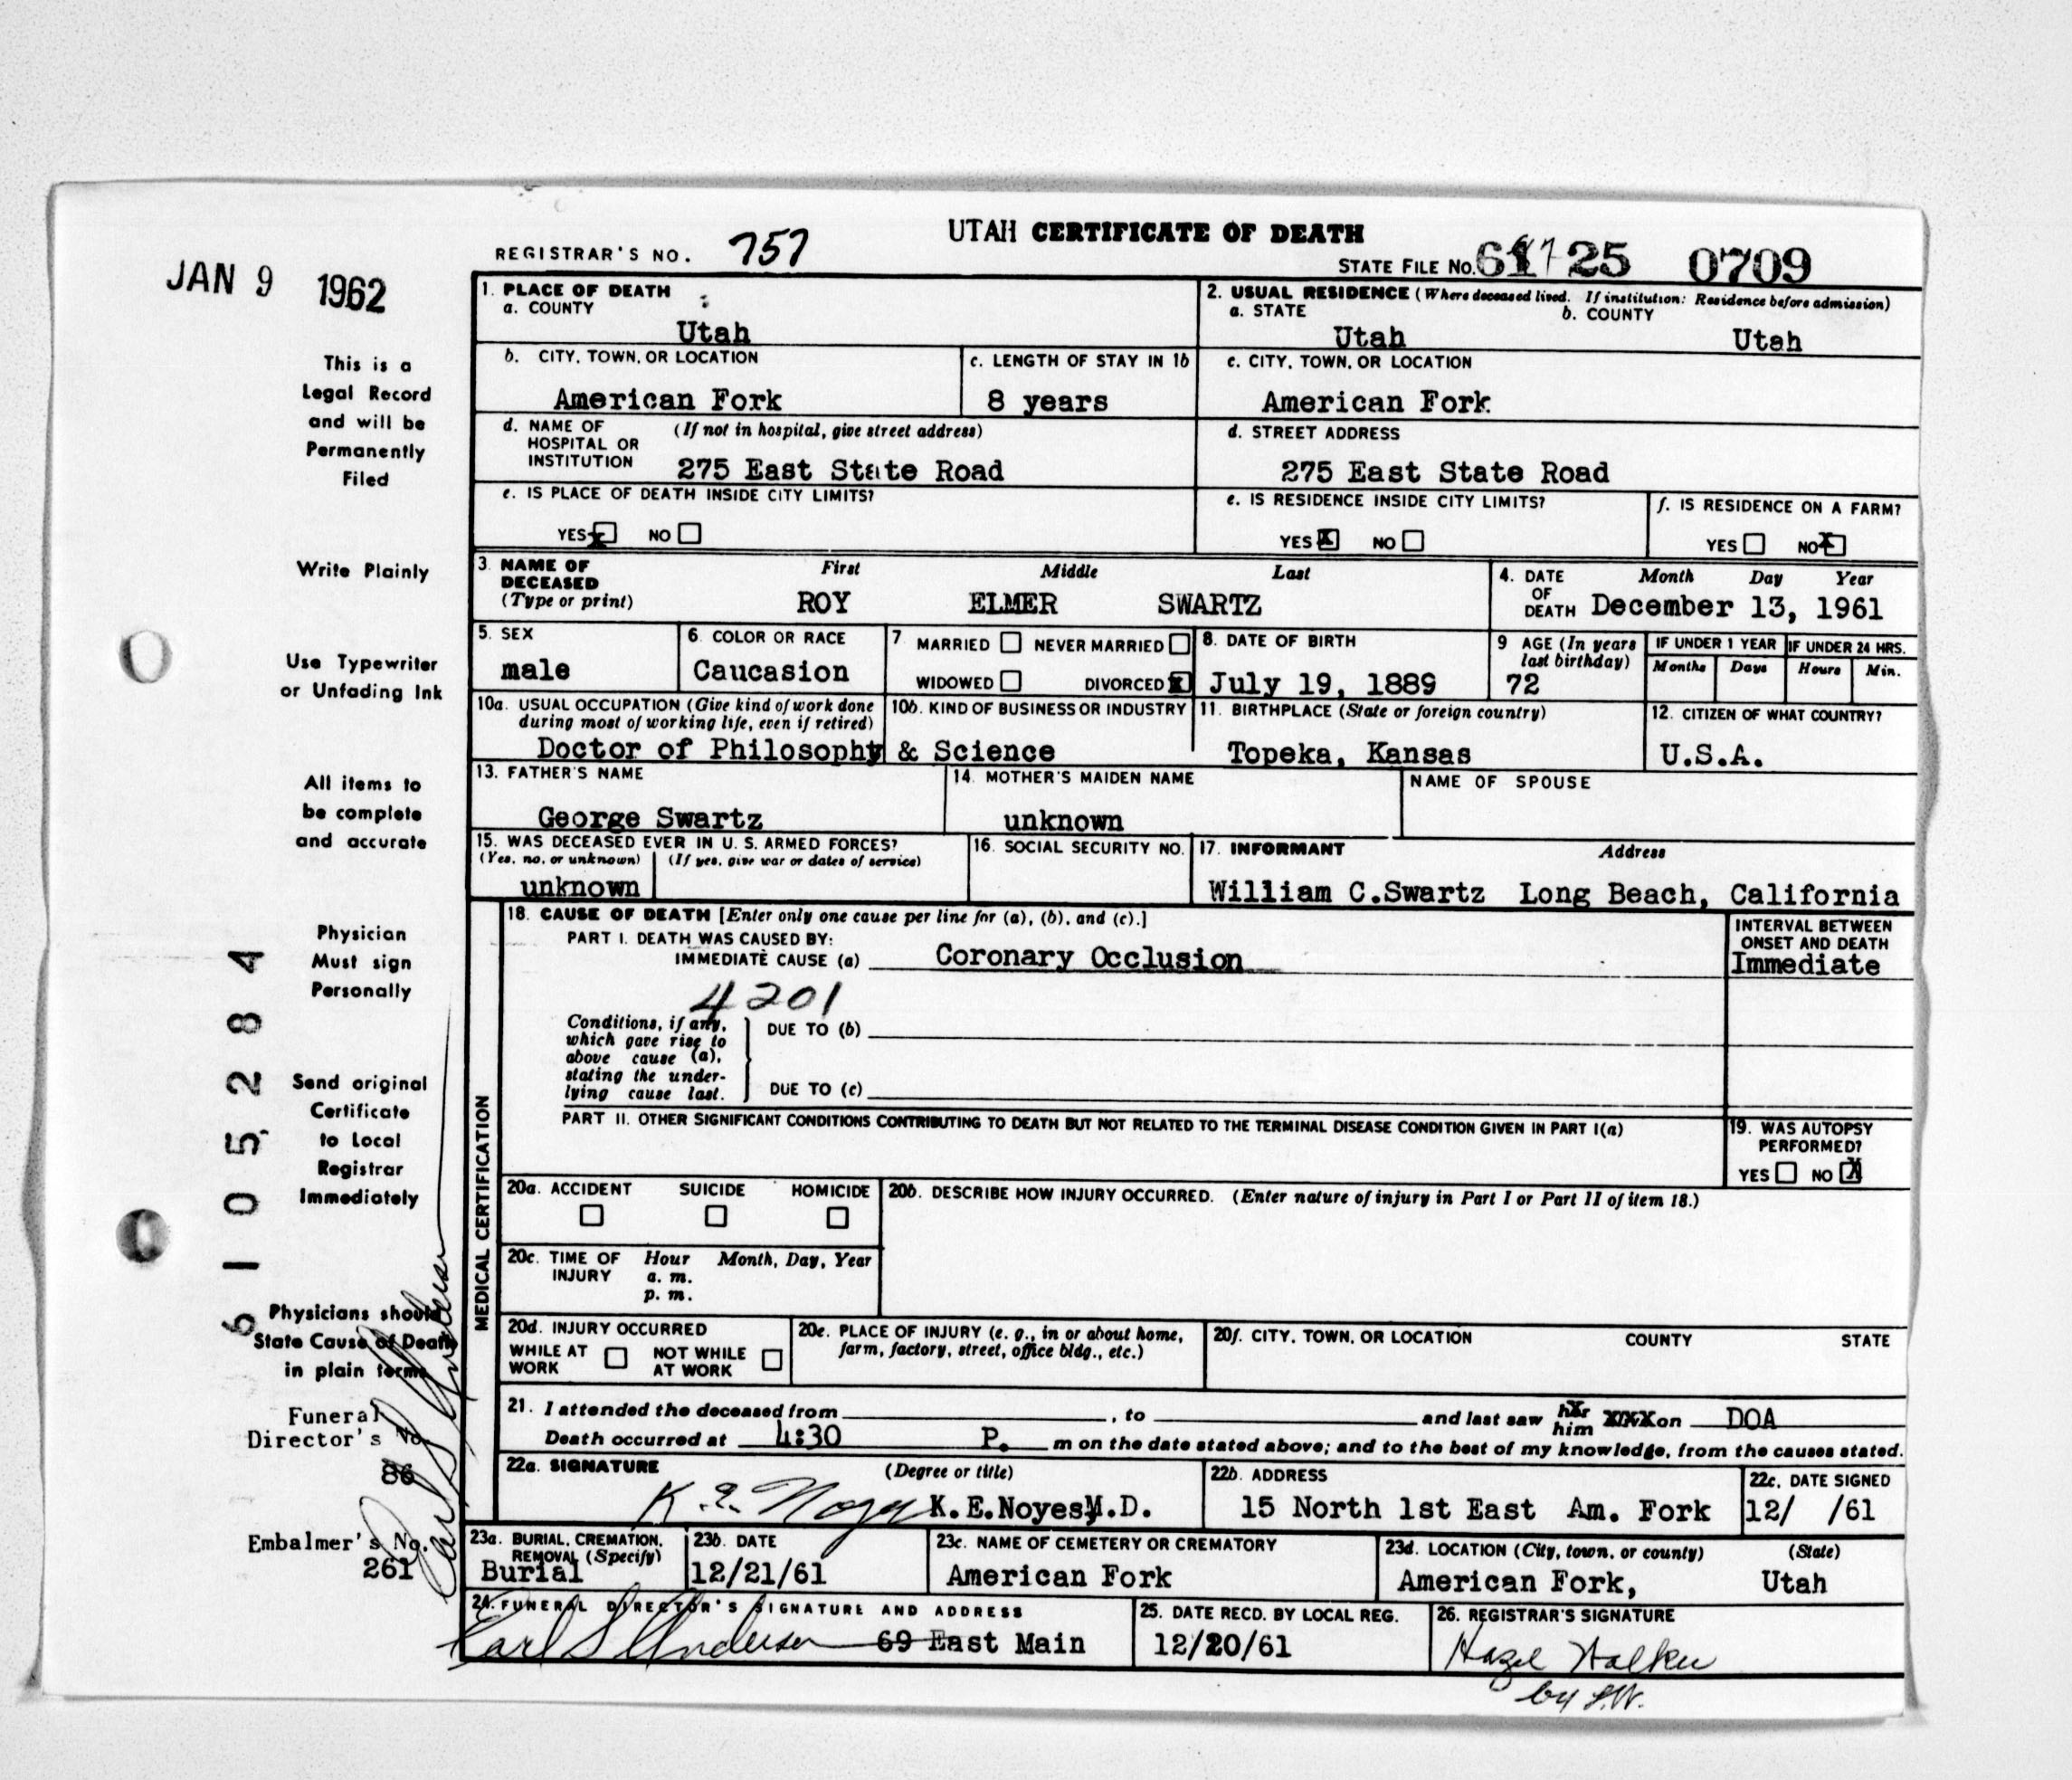 UTAH CERTIFICATE OF DEATH
REGISTRAR'S NO. 757
STATE FILE NO. 25 0709
JAN 9 1962
1. PLACE OF DEATH
a. COUNTY
Utah
2. USUAL RESIDENCE (Where deceased lived. If institution: Residence before admission)
a. STATE b. COUNTY
Utah Utah
b. CITY, TOWN, OR LOCATION
American Fork
c. LENGTH OF STAY IN 1b
8 years
c. CITY, TOWN, OR LOCATION
American Fork
d. NAME OF (If not in hospital, give street address)
HOSPITAL OR
INSTITUTION 275 East State Road
d. STREET ADDRESS
275 East State Road
e. IS PLACE OF DEATH INSIDE CITY LIMITS?
YES X NO
e. IS RESIDENCE INSIDE CITY LIMITS?
YES X NO
f. IS RESIDENCE ON A FARM?
YES NO X
3. NAME OF DECEASED First Middle Last
(Type or print) ROY ELMER SWARTZ
4. DATE OF DEATH Month Day Year
December 13, 1961
5. SEX
male
6. COLOR OR RACE
Caucasion
7. MARRIED NEVER MARRIED
WIDOWED DIVORCED X
8. DATE OF BIRTH
July 19, 1889
9 AGE (In years last birthday)
72
IF UNDER 1 YEAR IF UNDER 24 HRS.
Months Days Hours Min.
10a. USUAL OCCUPATION (Give kind of work done
during most of working life, even if retired)
10b. KIND OF BUSINESS OR INDUSTRY
Doctor of Philosophy & Science
11. BIRTHPLACE (State or foreign country)
Topeka, Kansas
12. CITIZEN OF WHAT COUNTRY?
U.S.A.
13. FATHER'S NAME
George Swartz
14. MOTHER'S MAIDEN NAME
unknown
NAME OF SPOUSE
15. WAS DECEASED EVER IN U. S. ARMED FORCES?
(Yes, no, or unknown) (If yes, give war or dates of service)
unknown
16. SOCIAL SECURITY NO.
17. INFORMANT Address
William C.Swartz Long Beach, California
MEDICAL CERTIFICATION
18. CAUSE OF DEATH [Enter only one cause per line for (a), (b), and (c).]
PART I. DEATH WAS CAUSED BY:
IMMEDIATE CAUSE (a) Coronary Occlusion
INTERVAL BETWEEN
ONSET AND DEATH
Immediate
4201
Conditions, if any,
which gave rise to
above cause (a),
stating the under-
lying cause last.
DUE TO (b)
DUE TO (c)
PART II. OTHER SIGNIFICANT CONDITIONS CONTRIBUTING TO DEATH BUT NOT RELATED TO THE TERMINAL DISEASE CONDITION GIVEN IN PART I(a)
19. WAS AUTOPSY
PERFORMED?
YES NO X
20a. ACCIDENT SUICIDE HOMICIDE
20b. DESCRIBE HOW INJURY OCCURRED. (Enter nature of injury in Part I or Part II of item 18.)
20c. TIME OF INJURY Hour Month, Day, Year
a. m.
p. m.
20d. INJURY OCCURRED
WHILE AT WORK NOT WHILE AT WORK
20e. PLACE OF INJURY (e. g., in or about home,
farm, factory, street, office bldg., etc.)
20f. CITY, TOWN, OR LOCATION COUNTY STATE
21. I attended the deceased from , to and last saw her him XXX on DOA
Death occurred at 4:30 P. m on the date stated above; and to the best of my knowledge, from the causes stated.
22a. SIGNATURE (Degree or title)
K. E. Noyes K.E.Noyes M.D.
22b. ADDRESS
15 North 1st East Am. Fork
22c. DATE SIGNED
12/ /61
23a. BURIAL, CREMATION,
REMOVAL (Specify)
Burial
23b. DATE
12/21/61
23c. NAME OF CEMETERY OR CREMATORY
American Fork
23d. LOCATION (City, town, or county) (State)
American Fork, Utah
24. FUNERAL DIRECTOR'S SIGNATURE AND ADDRESS
Earl S Anderson 69 East Main
25. DATE RECD. BY LOCAL REG.
12/20/61
26. REGISTRAR'S SIGNATURE
Hazel Walker
by
This is a
Legal Record
and will be
Permanently
Filed
Write Plainly
Use Typewriter
or Unfading Ink
All items to
be complete
and accurate
Physician
Must sign
Personally
Send original
Certificate
to Local
Registrar
Immediately
Physicians should
State Cause of Death
in plain terms
Funeral
Director's No.
86
Embalmer's No.
261
Earl S Anderson
6105284